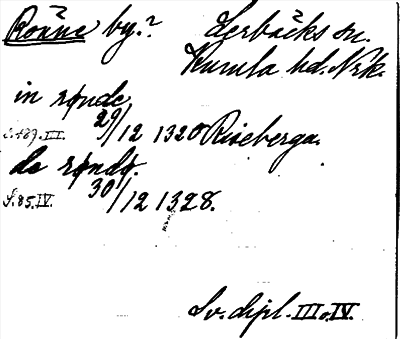 Rönne by.? Lerbäcks sn.
Kumla hd. Nrk.
in rønde
S. 487. III. 29/12 1320 Riseberga.
de røndø.
S. 85. IV. 30/12 1328.
Sv. dipl. III o. IV.